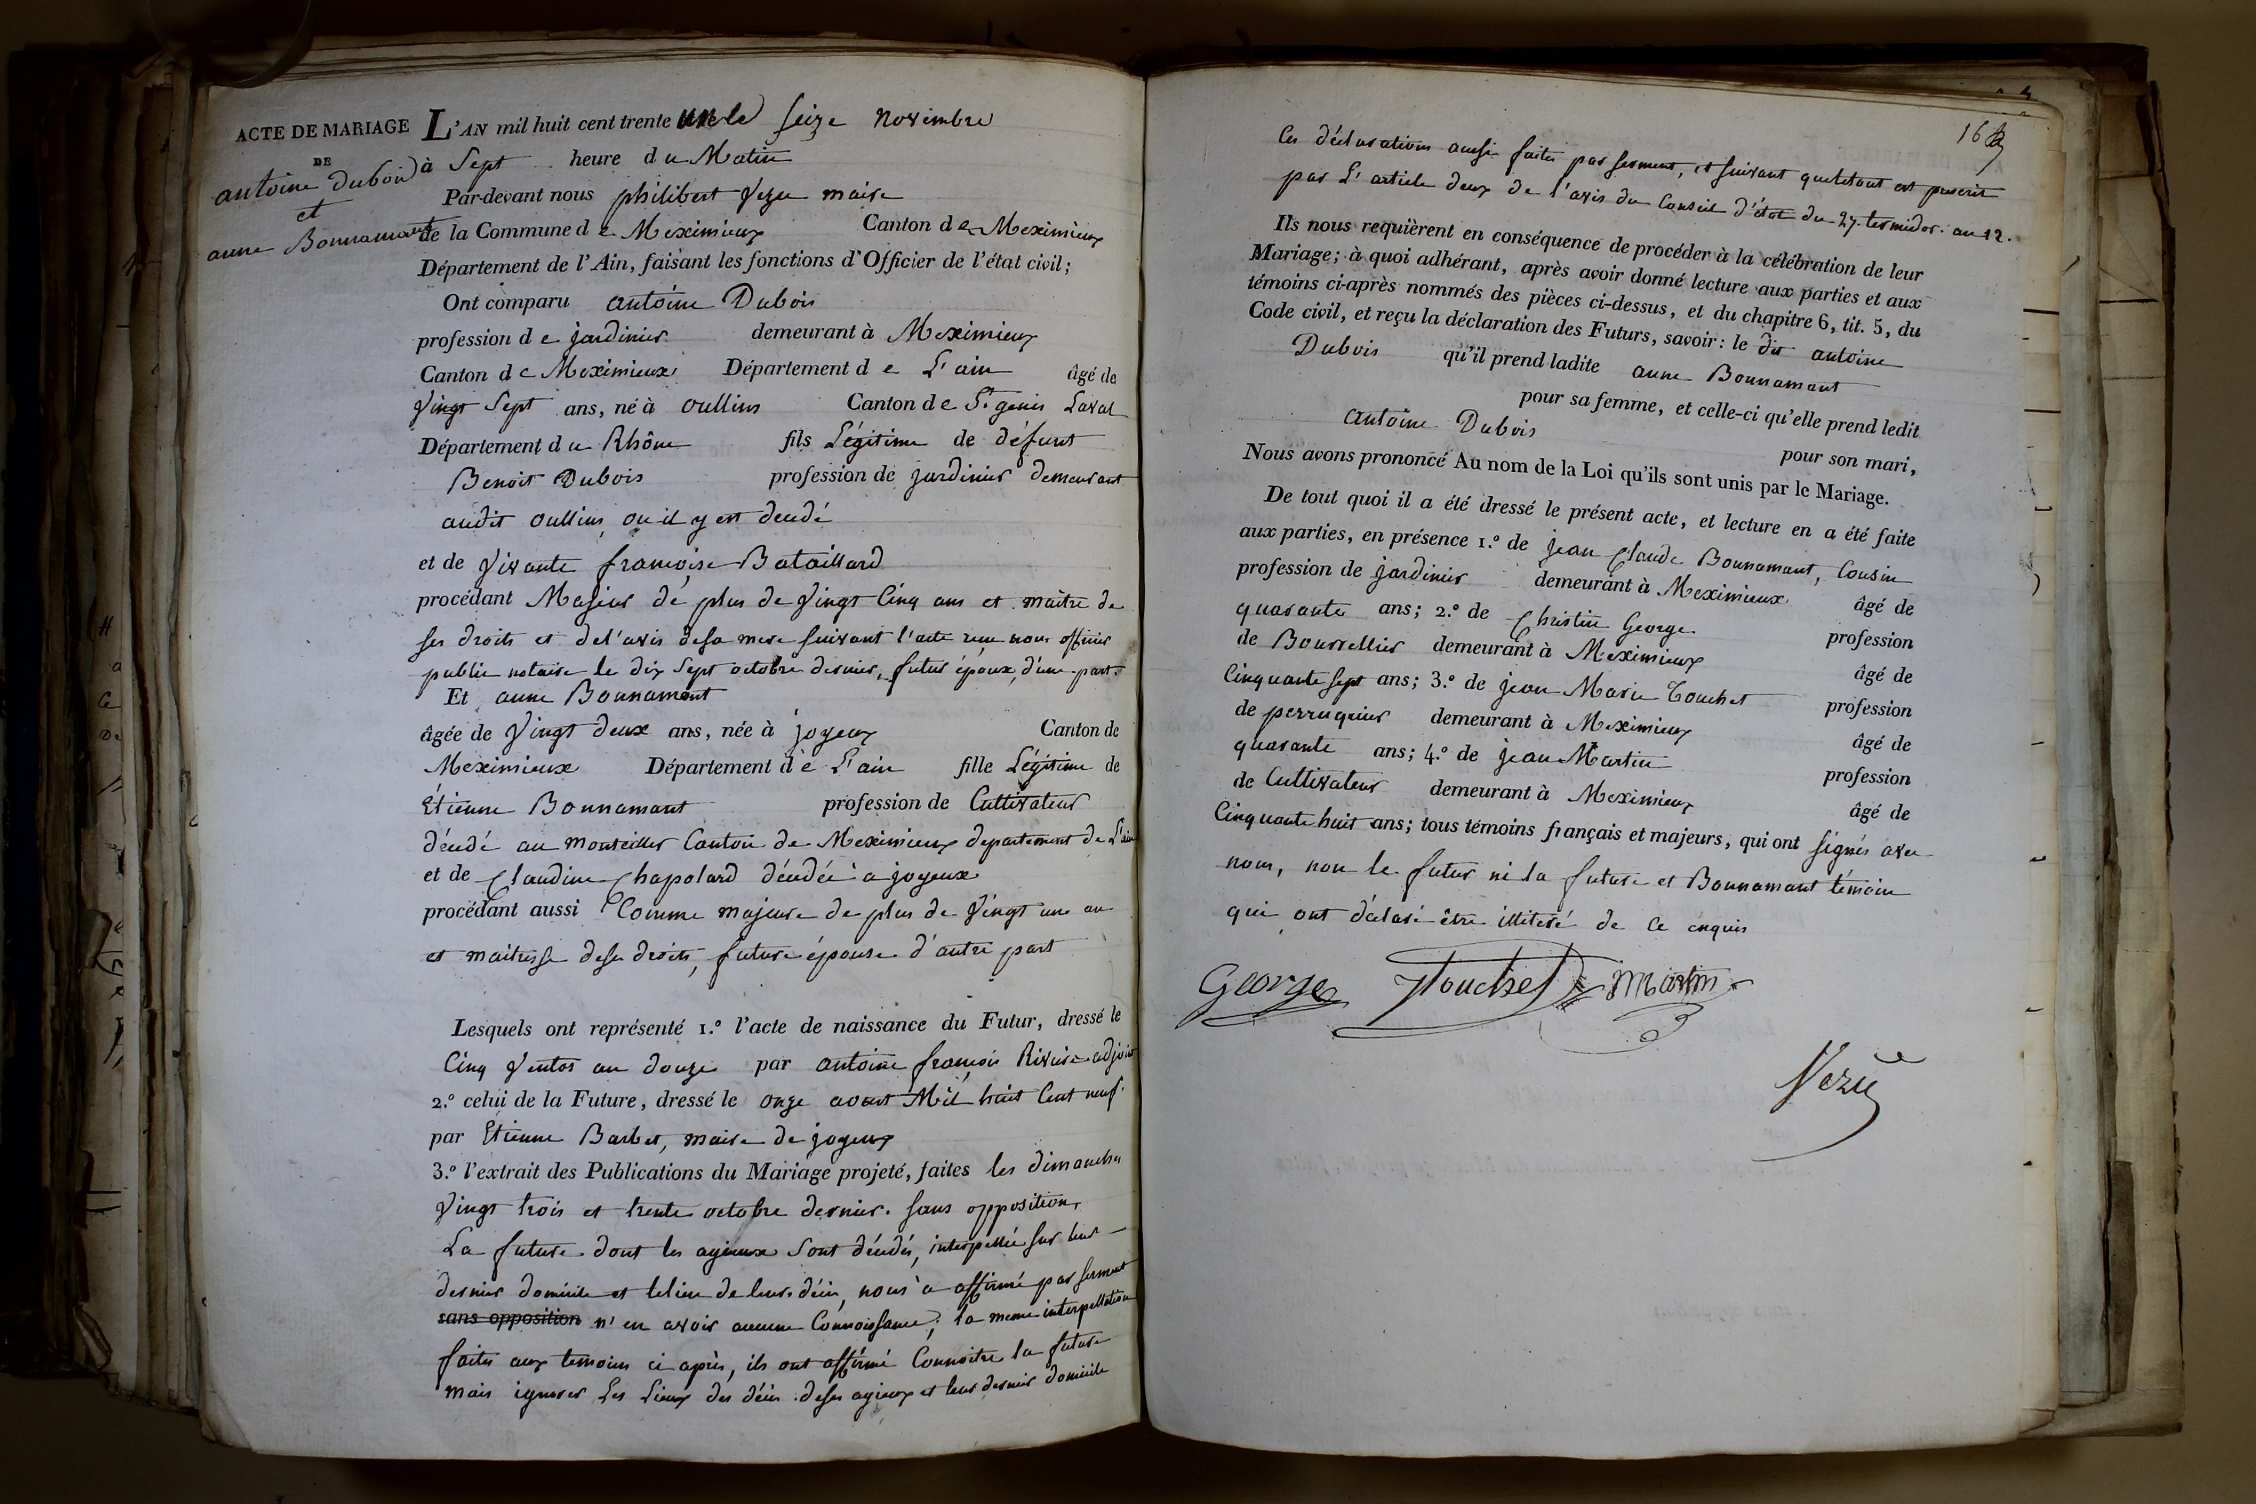 ACTE DE MARIAGE
DE
antoine Dubois
et
anne Bonnamant
L'AN mil huit cent trente un le seize novembre
à Sept heure du Matin
Par-devant nous philibert Vezu maire
de la Commune de Meximieux Canton de Meximieux
Département de l'Ain, faisant les fonctions d'Officier de l'état civil;
Ont comparu antoine Dubois
profession de jardinier demeurant à Meximieux
Canton de Meximieux Département de L'ain âgé de
Vingt Sept ans, né à oullins Canton de St. genis Laval
Département du Rhône fils Légitime de défunt
Benoit Dubois profession de jardinier demeurant
audit oullins ou il y est décédé
et de Vivante françoise Bataillard
procédant Majeur de plus de Vingt Cinq ans et maitre de
ses droits et del'avis desa mere suivant l'acte reçu nous officier
public notaire le dix Sept octobre dernier, futur époux, d'une part.
Et anne Bonnamant
âgée de Vingt deux ans, née à joyeux Canton de
Meximieux Département de L'ain fille Légitime de
Étienne Bonnamant profession de Cultivateur
décédé au montellier Canton de Meximieux departement de L'ain
et de Claudine Chapolard décédée a joyeux
procédant aussi Comme majeure de plus de Vingt une an
et maitresse deses droits, future épouse d'autre part
Lesquels ont représenté 1.° l'acte de naissance du Futur, dressé le
Cinq Ventos an douze par antoine françois Rivaire adjoint
2.° celui de la Future, dressé le onze avout Mil huit Cent neuf
par Etienne Barbet, maire de joyeux
3.° l'extrait des Publications du Mariage projeté, faites les dimanches
Vingt trois et trente octobre dernier. sans opposition,
La future dont les ayieux sont décédés, interpellée sur leur
dernier domicile et lelieu de leurs décès, nous a affirmé par serment
sans opposition n'en avoir aucune Connoissance; la meme interpellation
faites aux temoins ci après, ils ont affirmé Connoitre la future
mais ignorer Les Lieux des décès deses ayieux et leur dernier domicile
16
Ces déclarations aussi faites par serment, et suivant queletout est prescrit
par L'article deux de l'avis du Conseil d'état du 27. termidor. an 12.
Ils nous requièrent en conséquence de procéder à la célébration de leur
Mariage; à quoi adhérant, après avoir donné lecture aux parties et aux
témoins ci-après nommés des pièces ci-dessus, et du chapitre 6, tit. 5, du
Code civil, et reçu la déclaration des Futurs, savoir: le dit antoine
Dubois qu'il prend ladite anne Bonnamant
pour sa femme, et celle-ci qu'elle prend ledit
Antoine Dubois pour son mari,
Nous avons prononcé Au nom de la Loi qu'ils sont unis par le Mariage.
De tout quoi il a été dressé le présent acte, et lecture en a été faite
aux parties, en présence 1.° de jean Claude Bonnamant, Cousin
profession de jardinier demeurant à Meximieux âgé de
quarante ans; 2.° de Christin George profession
de Bourrellier demeurant à Meximieux âgé de
Cinquante sept ans; 3.° de jean Marie Touchet profession
de perruquier demeurant à Meximieux âgé de
quarante ans; 4.° de jean Martin profession
de Cultivateur demeurant à Meximieux âgé de
Cinquante huit ans; tous témoins français et majeurs, qui ont signés avec
nous, non le futur ni la future et Bonnamant témoin
qui ont déclaré être illiteré de ce enquis
George Touchet Martin
Vezu